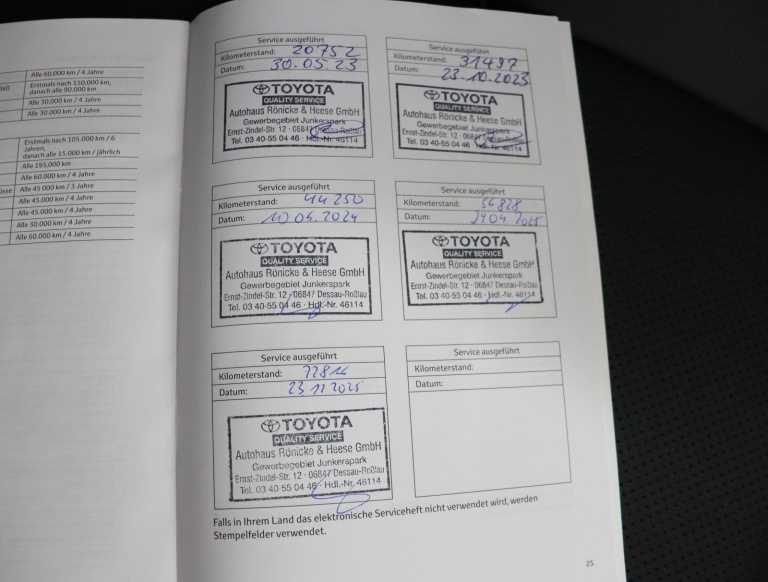 Alle 60.000 km / 4 Jahre
Erstmals nach 150.000 km,
danach alle 90.000 km
Alle 30.000 km / 4 Jahre
Alle 30.000 km / 4 Jahre
Erstmals nach 105.000 km / 6
Jahren,
danach alle 15.000 km / jährlich
Alle 195.000 km
Alle 60.000 km / 4 Jahre
Alle 45.000 km / 3 Jahre
Alle 45.000 km / 4 Jahre
Alle 45.000 km / 4 Jahre
Alle 30.000 km / 4 Jahre
Alle 60.000 km / 4 Jahre
Service ausgeführt
Kilometerstand: 20752
Datum: 30.05.23
TOYOTA
QUALITY SERVICE
Autohaus Rönicke & Heese GmbH
Gewerbegebiet Junkerspark
Ernst-Zindel-Str. 12 · 06847 Dessau-Roßlau
Tel. 03 40-55 04 46 · Hdl.-Nr. 46114
Service ausgeführt
Kilometerstand: 31497
Datum: 23.10.2023
TOYOTA
QUALITY SERVICE
Autohaus Rönicke & Heese GmbH
Gewerbegebiet Junkerspark
Ernst-Zindel-Str. 12 · 06847 Dessau-Roßlau
Tel. 03 40-55 04 46 · Hdl.-Nr. 46114
Service ausgeführt
Kilometerstand: 44250
Datum: 10.06.2024
TOYOTA
QUALITY SERVICE
Autohaus Rönicke & Heese GmbH
Gewerbegebiet Junkerspark
Ernst-Zindel-Str. 12 · 06847 Dessau-Roßlau
Tel. 03 40-55 04 46 · Hdl.-Nr. 46114
Service ausgeführt
Kilometerstand: 56828
Datum: 24.04.2025
TOYOTA
QUALITY SERVICE
Autohaus Rönicke & Heese GmbH
Gewerbegebiet Junkerspark
Ernst-Zindel-Str. 12 · 06847 Dessau-Roßlau
Tel. 03 40-55 04 46 · Hdl.-Nr. 46114
Service ausgeführt
Kilometerstand: 72814
Datum: 23.11.2025
TOYOTA
QUALITY SERVICE
Autohaus Rönicke & Heese GmbH
Gewerbegebiet Junkerspark
Ernst-Zindel-Str. 12 · 06847 Dessau-Roßlau
Tel. 03 40-55 04 46 · Hdl.-Nr. 46114
Service ausgeführt
Kilometerstand:
Datum:
Falls in Ihrem Land das elektronische Serviceheft nicht verwendet wird, werden
Stempelfelder verwendet.
25